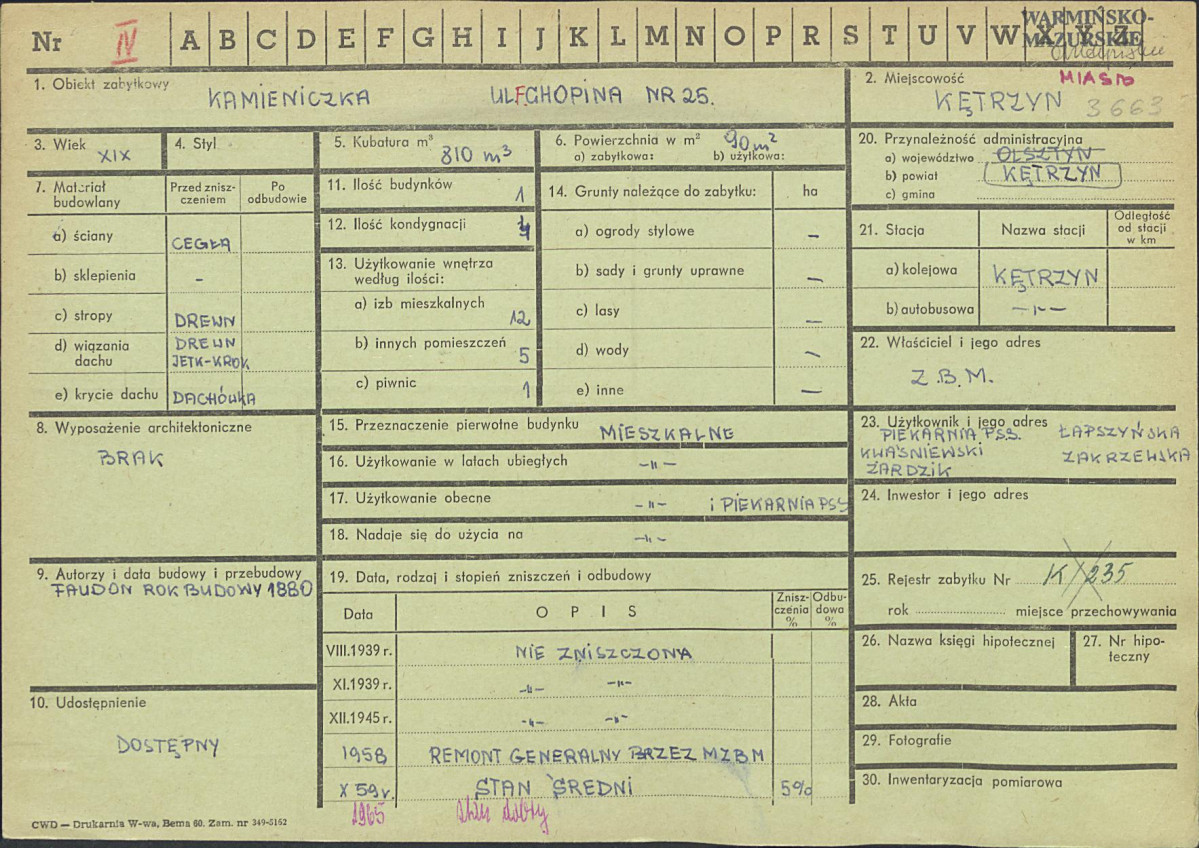 Nr IV A B C D E F G H I J K L M N O P R S T U V W X Y Z
WARMIŃSKO-
MAZURSKIE
1. Obiekt zabytkowy
KAMIENICZKA UL.F.CHOPINA NR 25.
2. Miejscowość MIASTO
KĘTRZYN 3663
3. Wiek XIX
4. Styl
5. Kubatura m³ 810 m³
6. Powierzchnia w m² 90 m²
a) zabytkowa: b) użytkowa:
20. Przynależność administracyjna
a) województwo OLSZTYN
b) powiat KĘTRZYN
c) gmina
7. Materiał budowlany
Przed zniszczeniem
Po odbudowie
a) ściany CEGŁA
b) sklepienia -
c) stropy DREWN
d) wiązania dachu DREWN JETK-KROK
e) krycie dachu DACHÓWKA
11. Ilość budynków 1
12. Ilość kondygnacji
13. Użytkowanie wnętrza
według ilości:
a) izb mieszkalnych 12
b) innych pomieszczeń 5
c) piwnic 1
14. Grunty należące do zabytku: ha
a) ogrody stylowe —
b) sady i grunty uprawne —
c) lasy —
d) wody —
e) inne —
21. Stacja Nazwa stacji Odległość od stacji w km
a) kolejowa KĘTRZYN
b) autobusowa —"—
22. Właściciel i jego adres
Z.B.M.
8. Wyposażenie architektoniczne
BRAK
15. Przeznaczenie pierwotne budynku MIESZKALNE
16. Użytkowanie w latach ubiegłych —"—
17. Użytkowanie obecne —"— i PIEKARNIA PSS
18. Nadaje się do użycia na —"—
23. Użytkownik i jego adres
PIEKARNIA P.S.S. ŁAPSZYŃSKA
KWAŚNIEWSKI ZAKRZEWSKA
ŻARDZIK
24. Inwestor i jego adres
9. Autorzy i data budowy i przebudowy
FAUDON ROK BUDOWY 1880
19. Data, rodzaj i stopień zniszczeń i odbudowy
Data OPIS Zniszczenia % Odbudowa %
VIII.1939 r. NIE ZNISZCZONA
XI.1939 r. —"— —"—
XII.1945 r. —"— —"—
1958 REMONT GENERALNY PRZEZ MZBM
X 59 r. STAN ŚREDNI 5%
1965 stan dobry
25. Rejestr zabytku Nr K/235
rok miejsce przechowywania
26. Nazwa księgi hipotecznej
27. Nr hipoteczny
28. Akta
29. Fotografie
30. Inwentaryzacja pomiarowa
10. Udostępnienie
DOSTĘPNY
CWD — Drukarnia W-wa, Bema 60. Zam. nr 349-5162